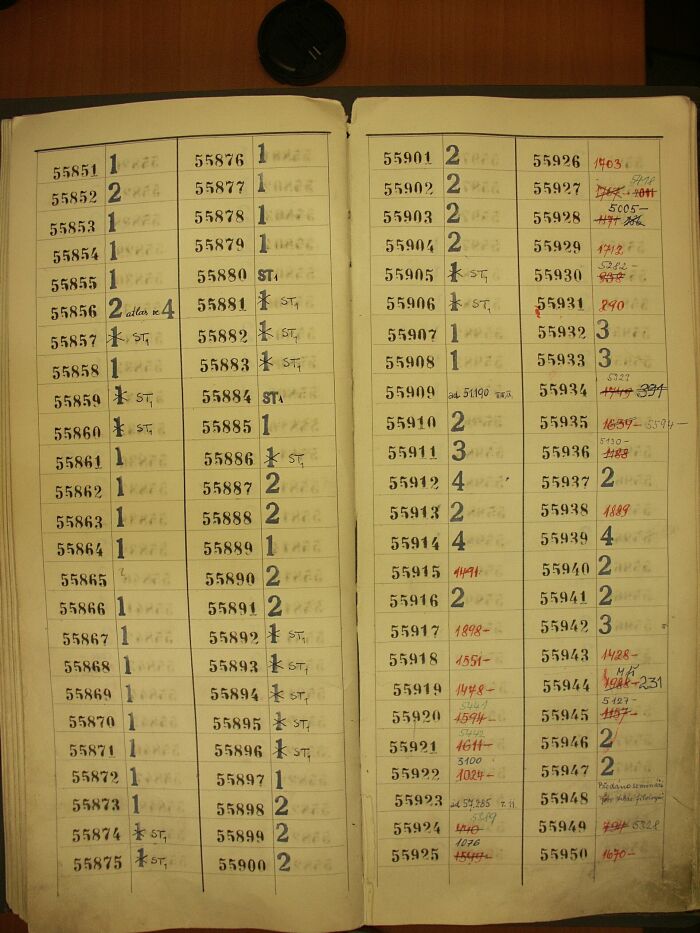 55851 1
55852 2
55853 1
55854 1
55855 1
55856 2 atlas je 4
55857 1 ST1
55858 1
55859 1 ST1
55860 1 ST1
55861 1
55862 1
55863 1
55864 1
55865
55866 1
55867 1
55868 1
55869 1
55870 1
55871 1
55872 1
55873 1
55874 1 ST1
55875 1 ST1
55876 1
55877 1
55878 1
55879 1
55880 ST1
55881 1 ST1
55882 1 ST1
55883 1 ST1
55884 ST1
55885 1
55886 1 ST1
55887 2
55888 2
55889 1
55890 2
55891 2
55892 1 ST1
55893 1 ST1
55894 1 ST1
55895 1 ST1
55896 1 ST1
55897 1
55898 2
55899 2
55900 2
55901 2
55902 2
55903 2
55904 2
55905 1 ST1
55906 1 ST1
55907 1
55908 1
55909 ad 51190
55910 2
55911 3
55912 4
55913 2
55914 4
55915 1491
55916 2
55917 1898-
55918 1551-
55919 1478-
5441
55920 1594-
5442
55921 1611-
3100
55922 1024-
55923 ad 57,285
5319
55924 440
1076
55925 1599-
55926 1703
55927
5005-
55928 1171
55929 1712
5282-
55930 838
55931 890
55932 3
55933 3
5329
55934 1745 391
55935 1639- 5594-
5130-
55936 1188
55937 2
55938 1889
55939 4
55940 2
55941 2
55942 3
55943 1428-
55944 231
5127-
55945 1157-
55946 2
55947 2
Předáno semináři
55948
55949 794 5328
55950 1670-